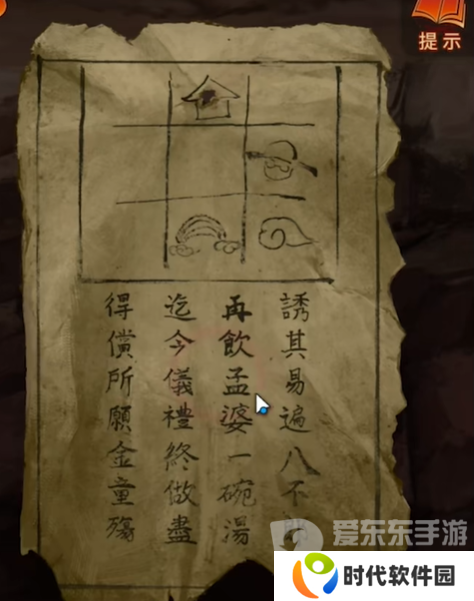 提示
誘其易遍八不
再飲孟婆一碗湯
迄今儀禮終做盡
得償所願金童殤
爱东东手游
时代软件园